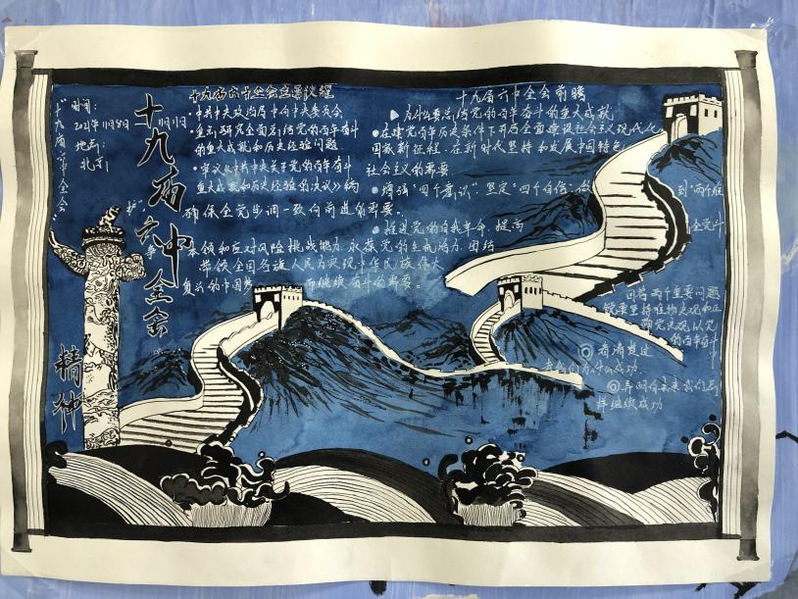 "十九届六中全会"
时间:
2021年11月8日—11月11日
地点:
北京
十九届六中全会
精神
十九届六中全会主要议程
中共中央政治局向中央委员会
重点研究全面总结党的百年奋斗
的重大成就和历史经验问题
审议《中共中央关于党的百年奋斗
重大成就和历史经验的决议》稿
十九届六中全会前瞻
为什么要总结党的百年奋斗的重大成就
在建党百年历史条件下开启全面建设社会主义现代化
国家新征程,在新时代坚持和发展中国特色
社会主义的需要
增强"四个意识"、坚定"四个自信",做到"两个维
护",确保全党步调一致向前进的需要。
推进党的自我革命、提高全党斗
争本领和应对风险挑战能力、永葆党的生机活力、团结
带领全国各族人民为实现中华民族伟大
复兴的中国梦而继续奋斗的需要。
两个重要问题
看清楚过
去我们为什么成功
弄明白未来我们怎
样继续成功